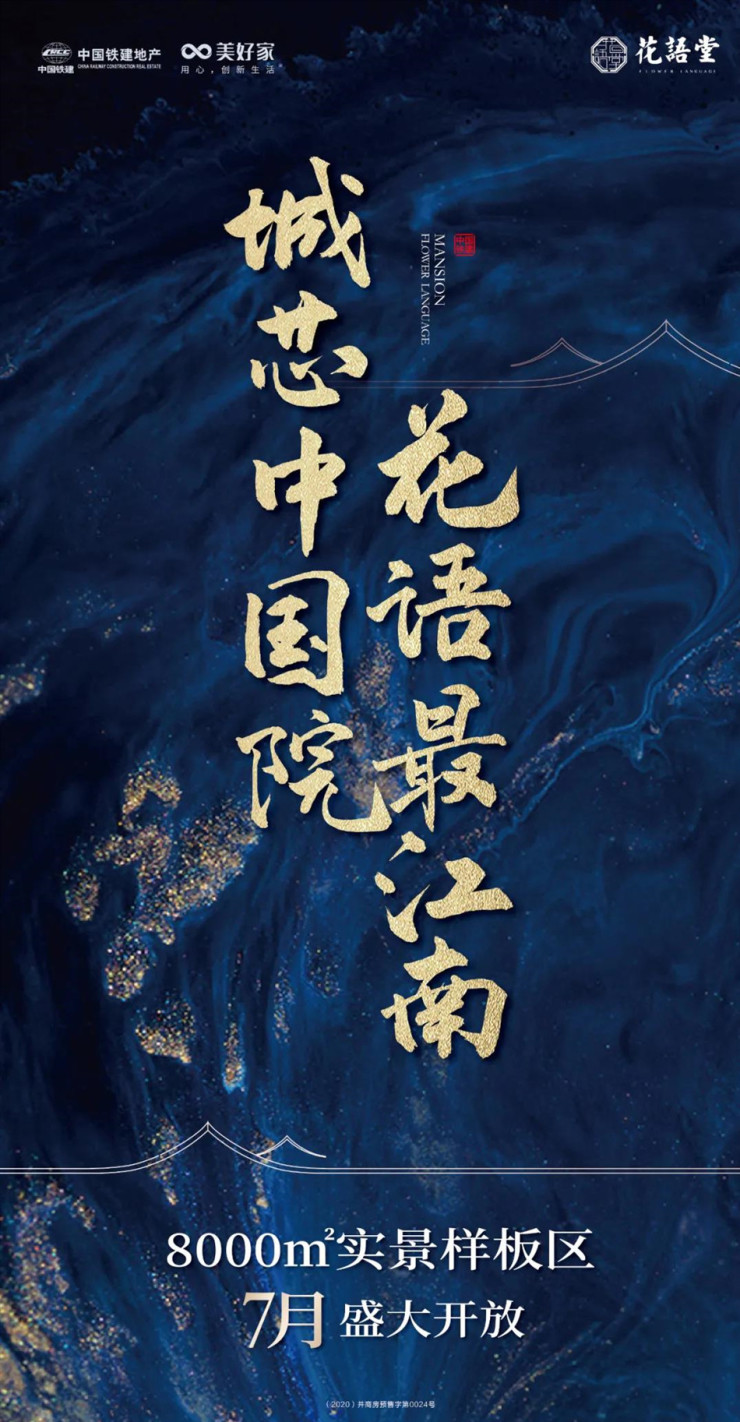 中国铁建
中国铁建地产
CHINA RAILWAY CONSTRUCTION REAL ESTATE
美好家
用心，创新生活
花語堂
FLOWER LANGUAGE
城芯中国院
花语最江南
MANSION
FLOWER LANGUAGE
8000㎡实景样板区
7月 盛大开放